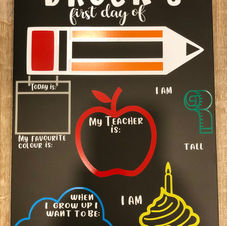 BROCK'S
first day of
Today is:
I AM
My Teacher
is:
My favourite
colour is:
TALL
when
I grow up I
want to be:
I AM